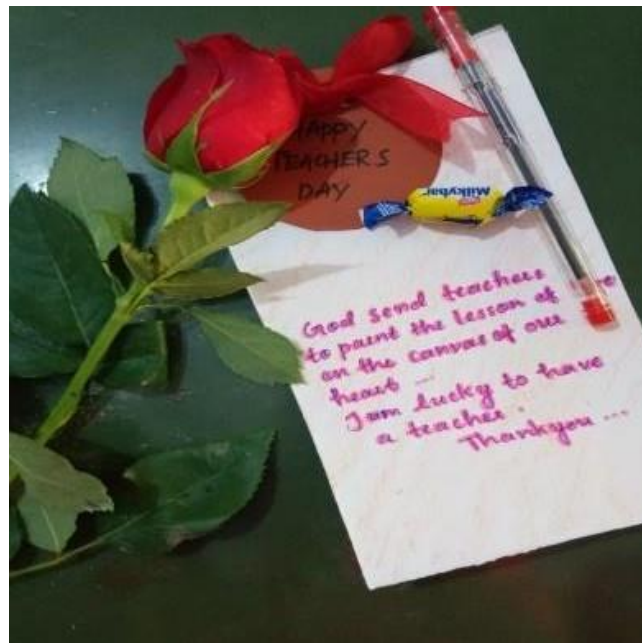 HAPPY
TEACHERS
DAY
Milkybar
God send teachers
to paint the lesson of
on the canvas of our
heart ...
I am lucky to have
a teacher.
Thankyou ...